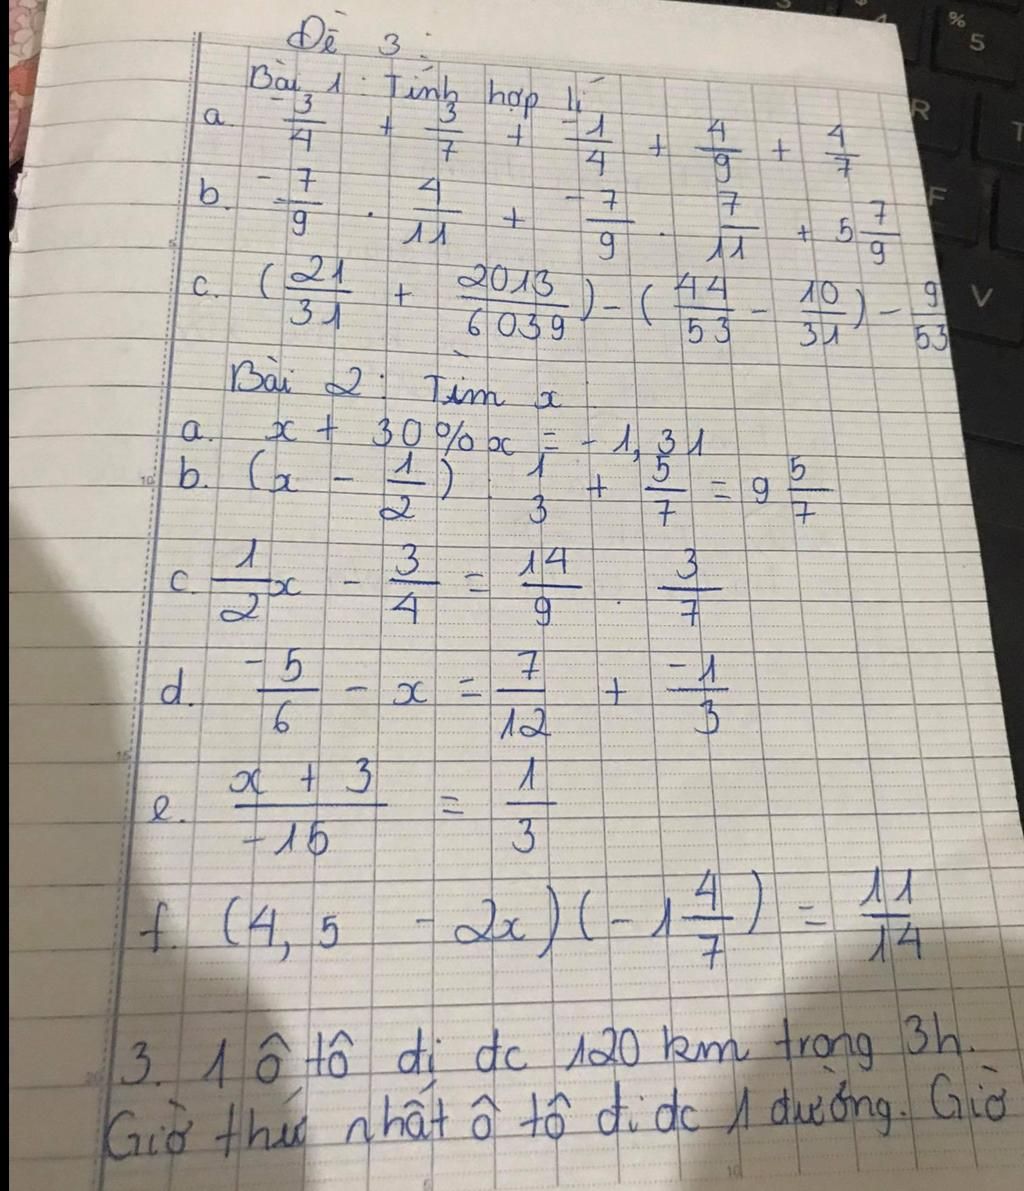 Đề 3:
Bài 1: Tính hợp lí
a. -3/4 + 3/7 + -1/4 + 4/9 + 4/7
b. -7/9 . 4/11 + -7/9 . 7/11 + 5 7/9
c. (21/31 + 2013/6039) - (44/53 - 10/31) - 9/53
Bài 2: Tìm x
a. x + 30%x = -1,31
b. (x - 1/2) : 1/3 + 5/7 = 9 5/7
c. 1/2x - 3/4 = 14/9 . 3/7
d. -5/6 - x = 7/12 + -1/3
e. x + 3/-15 = 1/3
f. (4,5 - 2x)(-1 4/7) = 11/14
3. 1 ô tô đi dc 120 km trong 3h.
Giờ thứ nhất ô tô đi dc 1 đường. Giờ
% 5
R
T
F
V